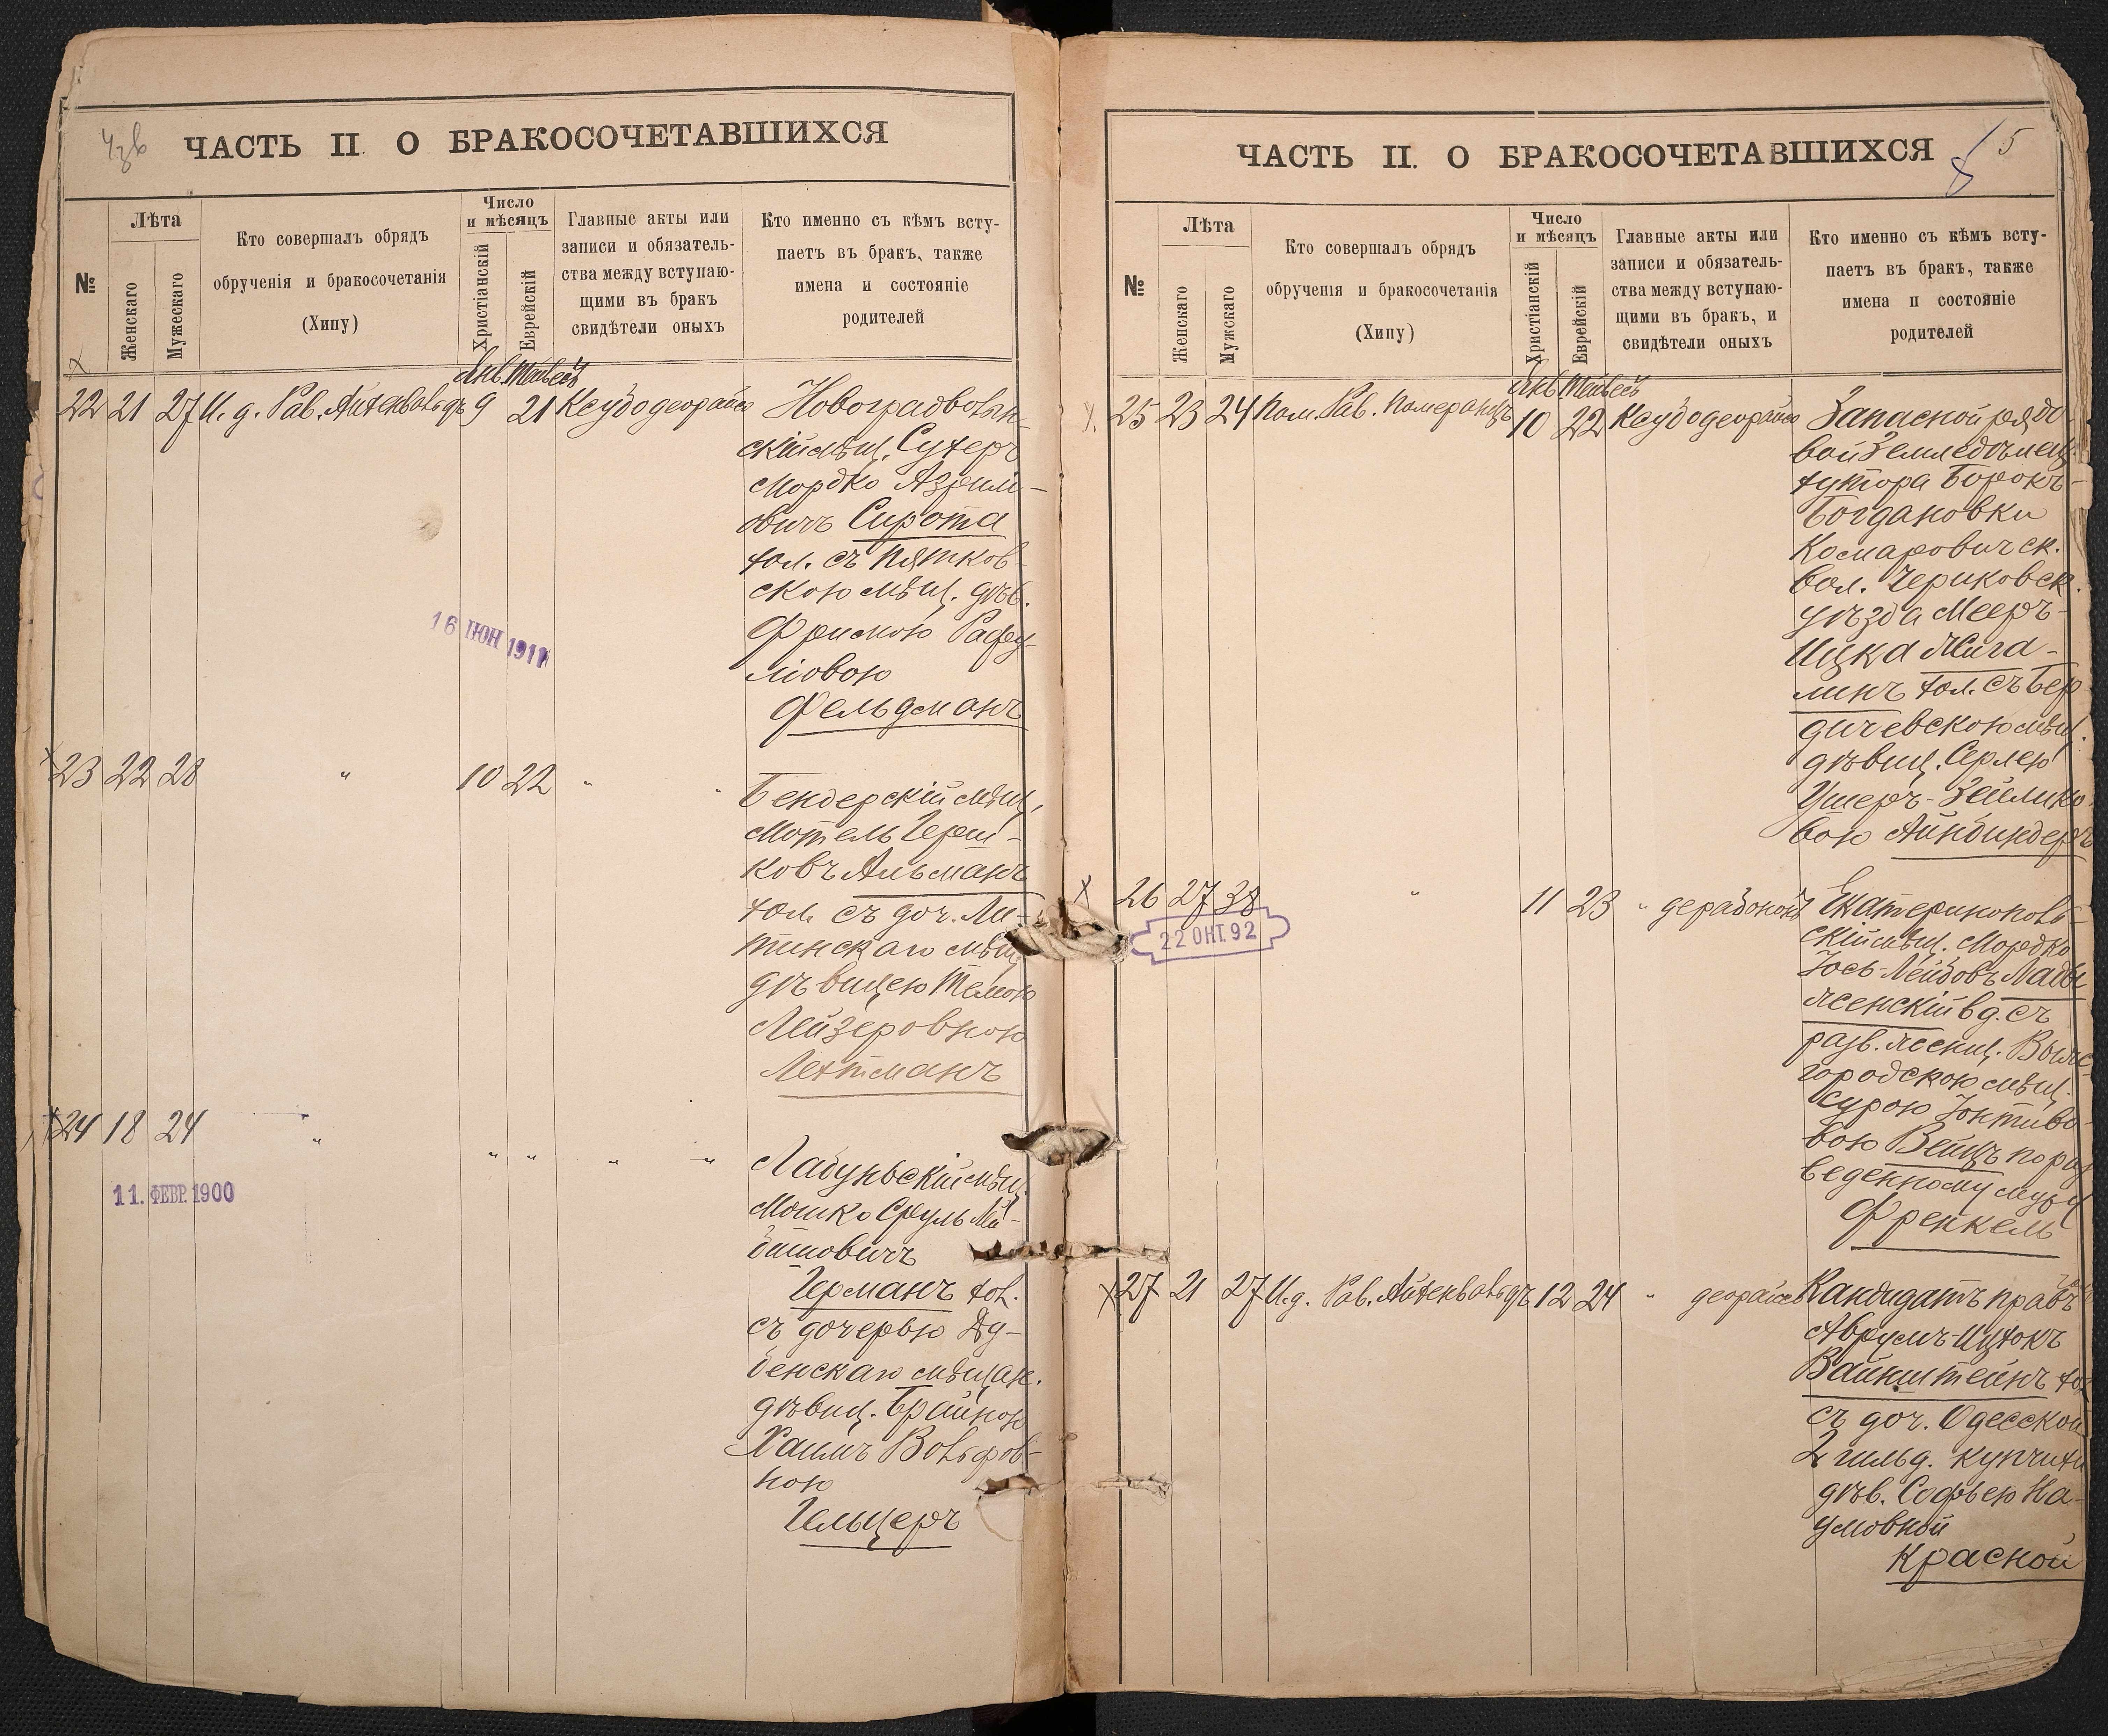 ЧАСТЬ II О БРАКОСОЧЕТАВШИХСЯ
№
Лѣта
Женскаго
Мужескаго
Кто совершалъ обрядъ
обрученія и бракосочетанія
(Хипу)
Число
и мѣсяцъ
Христіанскій
Еврейскій
Главные акты или
записи и обязатель-
ства между вступаю-
щими въ бракъ
свидѣтели оныхъ
Кто именно съ кѣмъ всту-
паетъ въ бракъ, также
имена и состояніе
родителей
Янв. Тейвесъ
22 21 27 И. д. Рав. Айхенвальдъ 9 21 Ксудодеорайсо
Новоградволын-
скій мѣщ. Сухеръ
Мордко Азрили-
овичъ Сирота
хол. съ Пятков-
скою мѣщ. дѣв.
Фримою Рафу-
ловою
Фельдманъ
16 ІЮН 1911
23 22 28 " 10 22 " "
Бендерскій мѣщ.
Мотель Герш-
ковъ Альманъ
хол. съ доч. Ли-
тинскаго мѣщ.
дѣвицею Темою
Лейзеровною
Лехтманъ
24 18 24 " " " " "
11. ФЕВР. 1900
Лабунскій мѣщ.
Мошко Сруль Лей-
бишовичъ
Германъ хол.
съ дочерью Ду-
бенскаго мѣщан.
дѣвиц. Брайною
Хаимъ Вольфов-
ною
Гельцеръ
ЧАСТЬ II. О БРАКОСОЧЕТАВШИХСЯ
5
№
Лѣта
Женскаго
Мужскаго
Кто совершалъ обрядъ
обрученія и бракосочетанія
(Хипу)
Число
и мѣсяцъ
Христіанскій
Еврейскій
Главные акты или
записи и обязатель-
ства между вступаю-
щими въ бракъ, и
свидѣтели оныхъ
Кто именно съ кѣмъ всту-
паетъ въ бракъ, также
имена и состояніе
родителей
Янв. Тейвесъ
25 23 24 Пом. Рав. Померанцъ 10 22 Ксудодеорайсо
Запасной рядо-
вой Земледѣлец.
хутора Борокъ-
Богдановки
Комаровичск.
вол. Чериковск.
уѣзда Мееръ-
Ицка Мига-
линъ хол. съ Бер
дичевскою мѣщ.
дѣвиц. Серлею
Ушеръ-Зейлико-
вою Айнбиндеръ
26 27 38 " 11 23 " дерабононъ
22 ОКТ. 92
Екатеринопольс-
скій мѣщ. Мордко
Іось-Лейбовъ Лады
женскій вд. съ
разв. женщ. Выше-
городскою мѣщ.
Сурою Іонтиво-
вою Вейцъ по раз
веденному мужу
Френкель
27 21 27 И. д. Рав. Айхенвальдъ 12 24 " деорайсо
Кандидатъ правъ
Аврумъ-Ицхокъ
Вайнштейнъ хол
съ доч. Одесской
2 гильд. купчихи
дѣв. Софьею На-
умовной
Красной